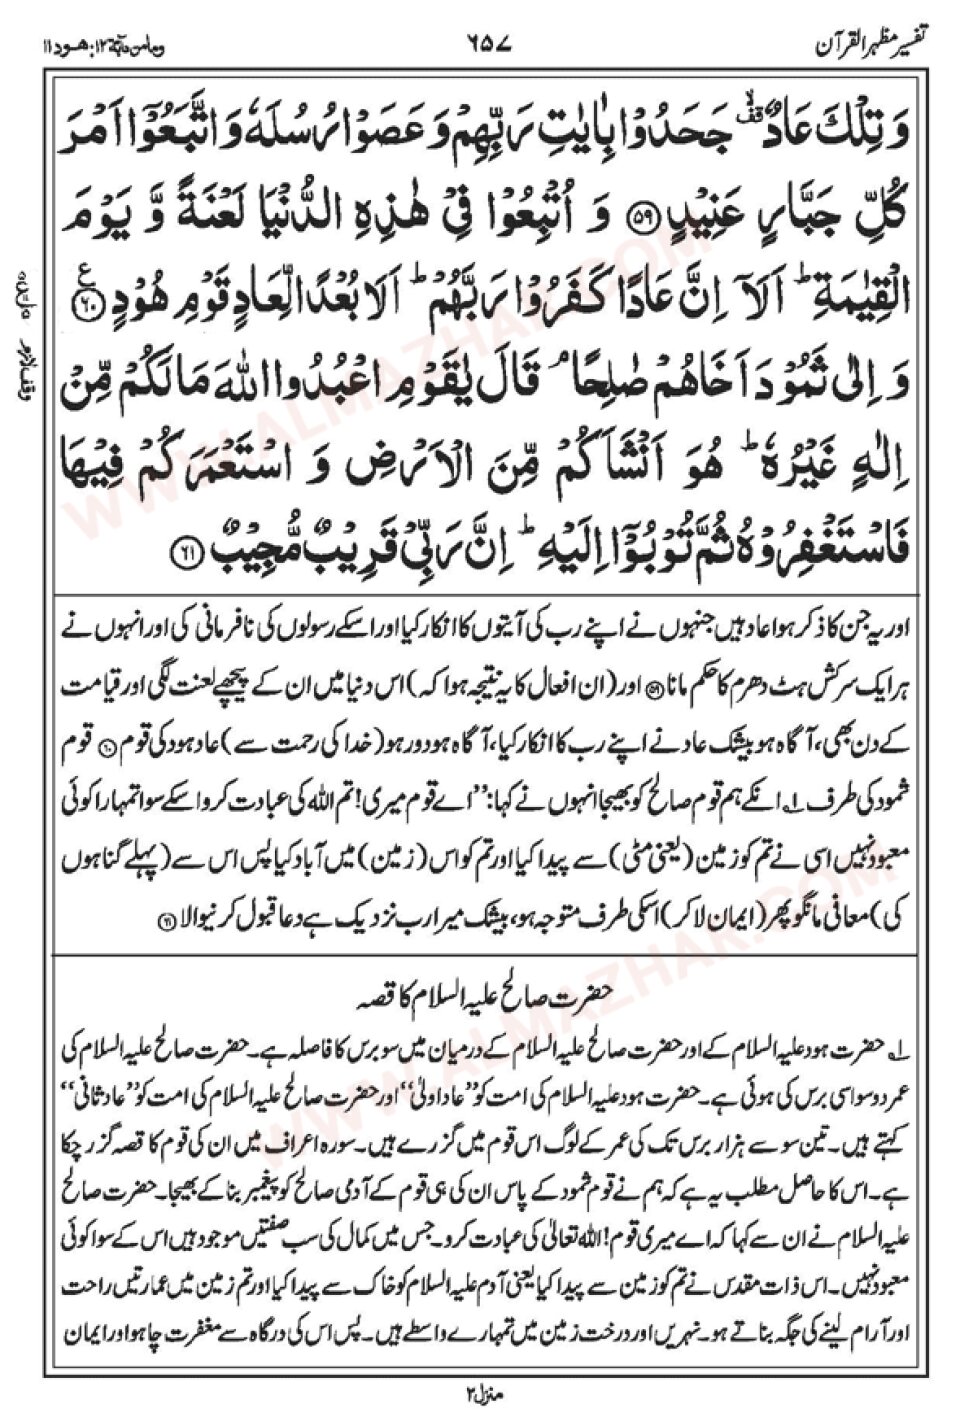 تفسیر مظہر القرآن
۶۵۷
وما من دآبۃ ۱۲: ھود ۱۱
وَ تِلْكَ عَادٌ ۟ۙ جَحَدُوْا بِاٰیٰتِ رَبِّهِمْ وَ عَصَوْا رُسُلَهٗ وَ اتَّبَعُوْۤا اَمْرَ
كُلِّ جَبَّارٍ عَنِیْدٍ ﴿۵۹﴾ وَ اُتْبِعُوْا فِیْ هٰذِهِ الدُّنْیَا لَعْنَةً وَّ یَوْمَ
الْقِیٰمَةِ ؕ اَلَاۤ اِنَّ عَادًا كَفَرُوْا رَبَّهُمْ ؕ اَلَا بُعْدًا لِّعَادٍ قَوْمِ هُوْدٍ ﴿۶۰﴾ ع
وَ اِلٰی ثَمُوْدَ اَخَاهُمْ صٰلِحًا ۘ قَالَ یٰقَوْمِ اعْبُدُوا اللّٰهَ مَا لَكُمْ مِّنْ
اِلٰهٍ غَیْرُهٗ ؕ هُوَ اَنْشَاَكُمْ مِّنَ الْاَرْضِ وَ اسْتَعْمَرَكُمْ فِیْهَا
فَاسْتَغْفِرُوْهُ ثُمَّ تُوْبُوْۤا اِلَیْهِ ؕ اِنَّ رَبِّیْ قَرِیْبٌ مُّجِیْبٌ ﴿۶۱﴾
وقف لازم
اور یہ جن کا ذکر ہوا عاد ہیں جنہوں نے اپنے رب کی آیتوں کا انکار کیا اور اسکے رسولوں کی نافرمانی کی اور انہوں نے
ہر ایک سرکش ہٹ دھرم کا حکم مانا ﴿۵۹﴾ اور (ان افعال کا یہ نتیجہ ہوا کہ) اس دنیا میں ان کے پیچھے لعنت لگی اور قیامت
کے دن بھی، آگاہ ہو بیشک عاد نے اپنے رب کا انکار کیا، آگاہ ہو دور ہو (خدا کی رحمت سے) عاد ہود کی قوم ﴿۶۰﴾ قوم
ثمود کی طرف ۱؎ انکے ہم قوم صالح کو بھیجا انہوں نے کہا: ”اے قوم میری! تم اللہ کی عبادت کرو اسکے سوا تمہارا کوئی
معبود نہیں اسی نے تم کو زمین (یعنی مٹی) سے پیدا کیا اور تم کو اس (زمین) میں آباد کیا پس اس سے (پہلے گناہوں
کی) معافی مانگو پھر (ایمان لا کر) اسکی طرف متوجہ ہو، بیشک میرا رب نزدیک ہے دعا قبول کرنیوالا ﴿۶۱﴾
حضرت صالح علیہ السلام کا قصہ
۱؎ حضرت ہود علیہ السلام کے اور حضرت صالح علیہ السلام کے درمیان میں سو برس کا فاصلہ ہے۔ حضرت صالح علیہ السلام کی
عمر دو سو اسی برس کی ہوئی ہے۔ حضرت ہود علیہ السلام کی امت کو ”عاد اولیٰ“ اور حضرت صالح علیہ السلام کی امت کو ”عاد ثانی“
کہتے ہیں۔ تین سو سے ہزار برس تک کی عمر کے لوگ اس قوم میں گزرے ہیں۔ سورہ اعراف میں ان کی قوم کا قصہ گزر چکا
ہے۔ اس کا حاصل مطلب یہ ہے کہ ہم نے قوم ثمود کے پاس ان کی ہی قوم کے آدمی صالح کو پیغمبر بنا کے بھیجا۔ حضرت صالح
علیہ السلام نے ان سے کہا کہ اے میری قوم! اللہ تعالیٰ کی عبادت کرو۔ جس میں کمال کی سب صفتیں موجود ہیں اس کے سوا کوئی
معبود نہیں۔ اس ذات مقدس نے تم کو زمین سے پیدا کیا یعنی آدم علیہ السلام کو خاک سے پیدا کیا اور تم زمین میں عمارتیں راحت
اور آرام لینے کی جگہ بناتے ہو۔ نہریں اور درخت زمین میں تمہارے واسطے ہیں۔ پس اس کی درگاہ سے مغفرت چاہو اور ایمان
منزل ۲
WWW.ALMAZHAR.COM
WWW.ALMAZHAK.COM